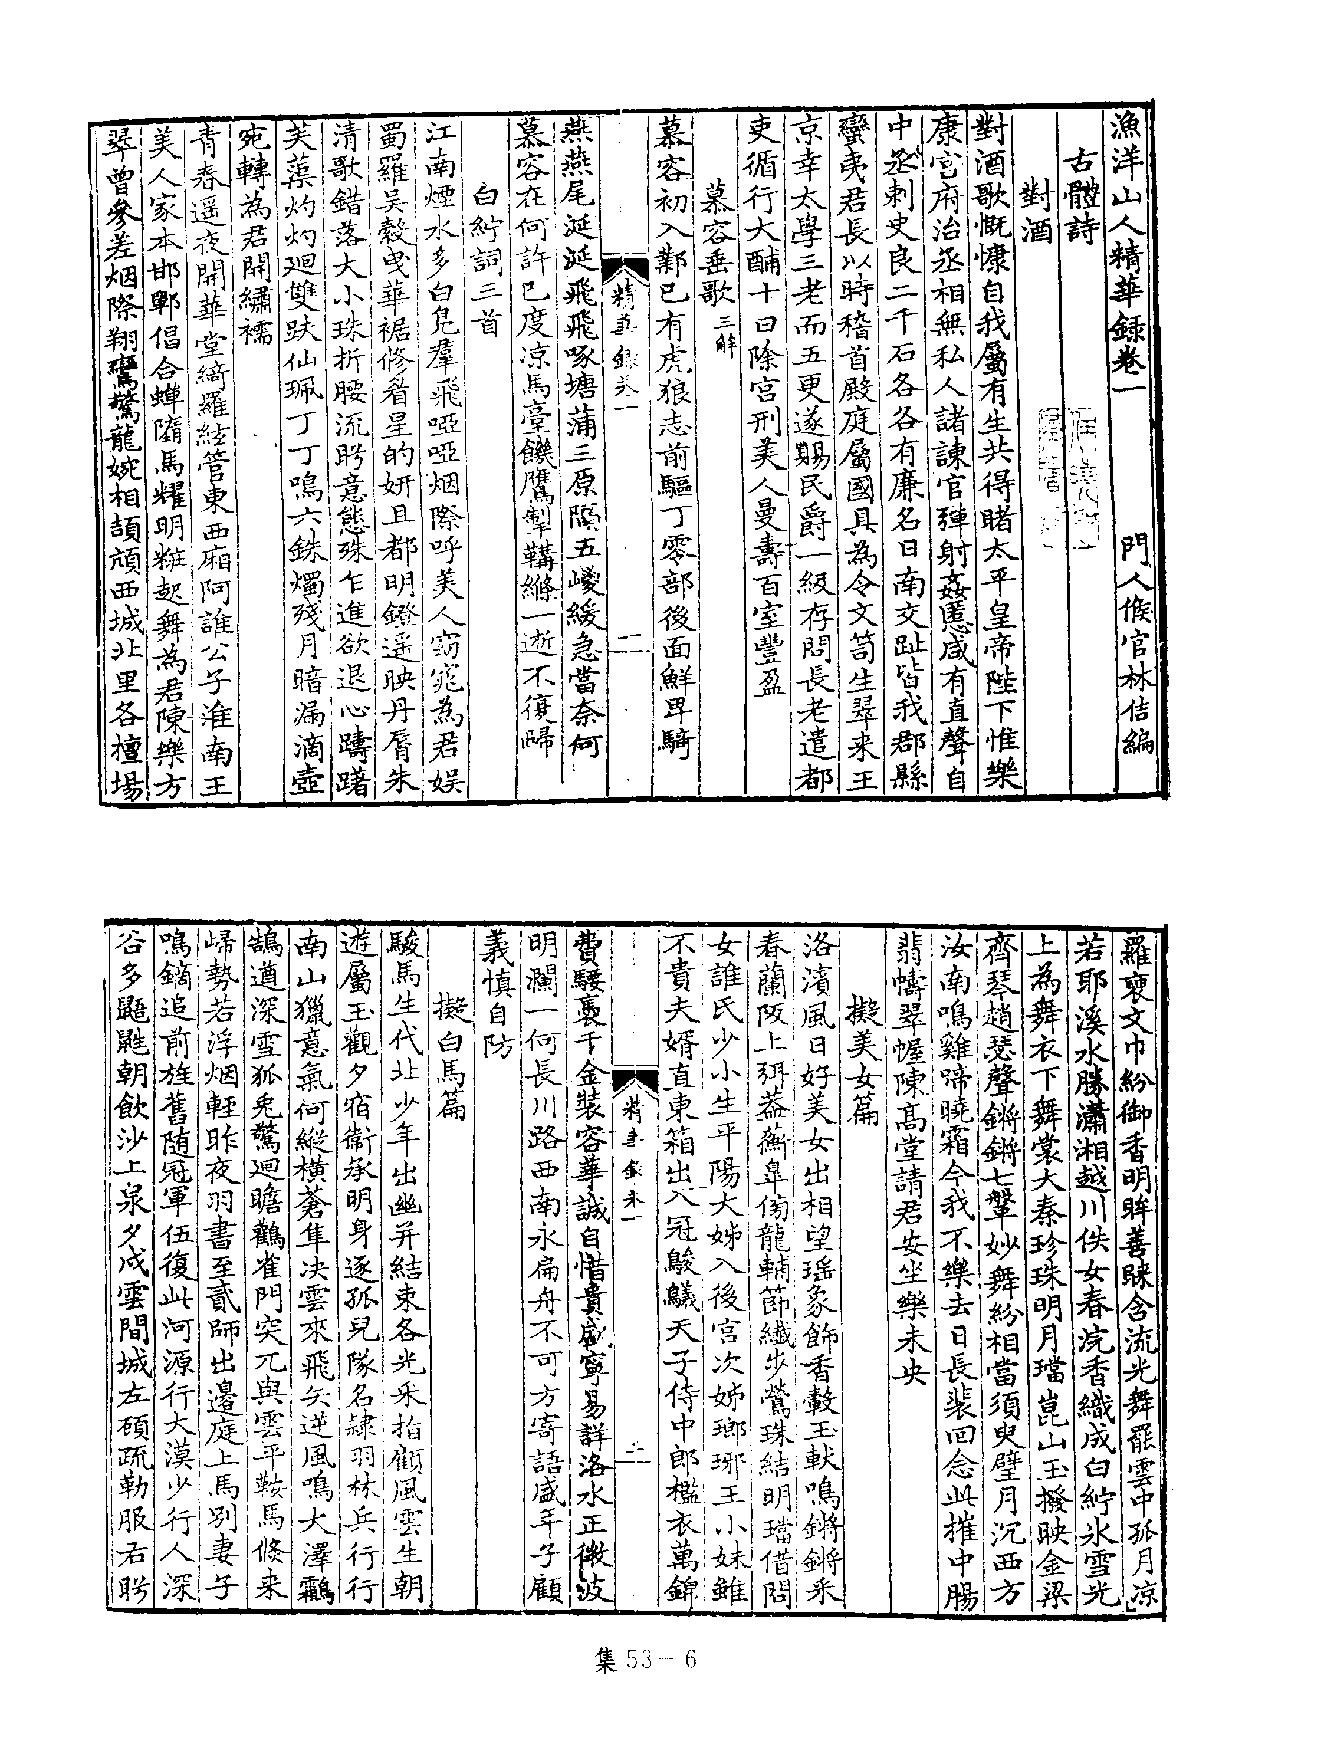 漁洋山人精華録卷一 門人候官林佶編
古體詩
對酒
對酒歌慨慷自我屬有生共得睹太平皇帝陛下惟樂
康官府治丞相無私人諸諫官彈射姦慝咸有直聲自
中丞刺史良二千石各各有廉名日南交趾皆我郡縣
蠻夷君長以時稽首殿庭屬國具為令文笥生翠来王
京幸太學三老而五更遂賜民爵一級存問長老遣都
吏循行大酺十日除宫刑美人曼壽百室豐盈
慕容垂歌三解
慕容初入鄴已有虎狼志前驅丁零部後面鮮卑騎
精華録卷一 二
燕燕尾涎涎飛飛啄塘蒲三原隔五㠉緩急當奈何
慕容在何許已度凉馬臺饑鷹掣鞲絛一逝不復歸
白紵詞三首
江南煙水多白鳬羣飛啞啞烟際呼美人窈窕為君娱
蜀羅吴縠曳華裾修眉星的妍且都明鐙遥映丹脣朱
清歌錯落大小珠折腰流盻意態殊乍進欲退心躊躇
芙蕖灼灼廻雙趺仙珮丁丁鳴六銖燭殘月暗漏滴壺
宛轉為君開繡襦
青春遥夜開華堂綺羅絃管東西廂阿誰公子淮南王
美人家本邯鄲倡合蟬隋馬耀明粧起舞為君陳樂方
翠曾參差烟際翔鸞驚龍婉相頡頏西城北里各檀場
羅襃文巾紛御香明眸善睞含流光舞罷雲中孤月凉
若耶溪水勝瀟湘越川佚女春浣香織成白紵氷雪光
上為舞衣下舞裳大秦珍珠明月璫崑山玉撥映金梁
齊琴趙瑟聲鏘鏘七鞶妙舞紛相當須臾璧月沉西方
汝南鳴雞啼曉霜今我不樂去日長裴回念此摧中腸
翡幬翠幄陳髙堂請君安坐樂未央
擬美女篇
洛濱風日好美女出相望瑶象飾香轂玉軑鳴鏘鏘采
春蘭阪上弭葢蘅臯傍龍輔節纎步鶯珠結明璫借問
女誰氏少小生平陽大姊入後宫次姊瑯琊王小妹雖
不貴夫婿直東箱出入冠鵔鸃天子侍中郎檻衣萬錦
精華録卷一 三
費騕褭千金裝容華誠自惜貴戚寧易詳洛水正微波
明瀾一何長川路西南永扁舟不可方寄語盛年子顧
義慎自防
擬白馬篇
駿馬生代北少年出幽并結束各光采指顧風雲生朝
遊屬玉觀夕宿衞承明身逐孤兒隊名隷羽林兵行行
南山獵意氣何縱横蒼隼决雲來飛矢逆風鳴大澤霸
鵠遒深雪狐兎驚廻瞻鸛雀門突兀與雲平鞍馬倏来
歸勢若浮烟輕昨夜羽書至貳師出邊庭上馬别妻子
鳴鏑追前旌舊随冠軍伍復此河源行大漠少行人深
谷多鼯鼪朝飲沙上泉夕戍雲間城左碩疏勒服右盻
集 53－6